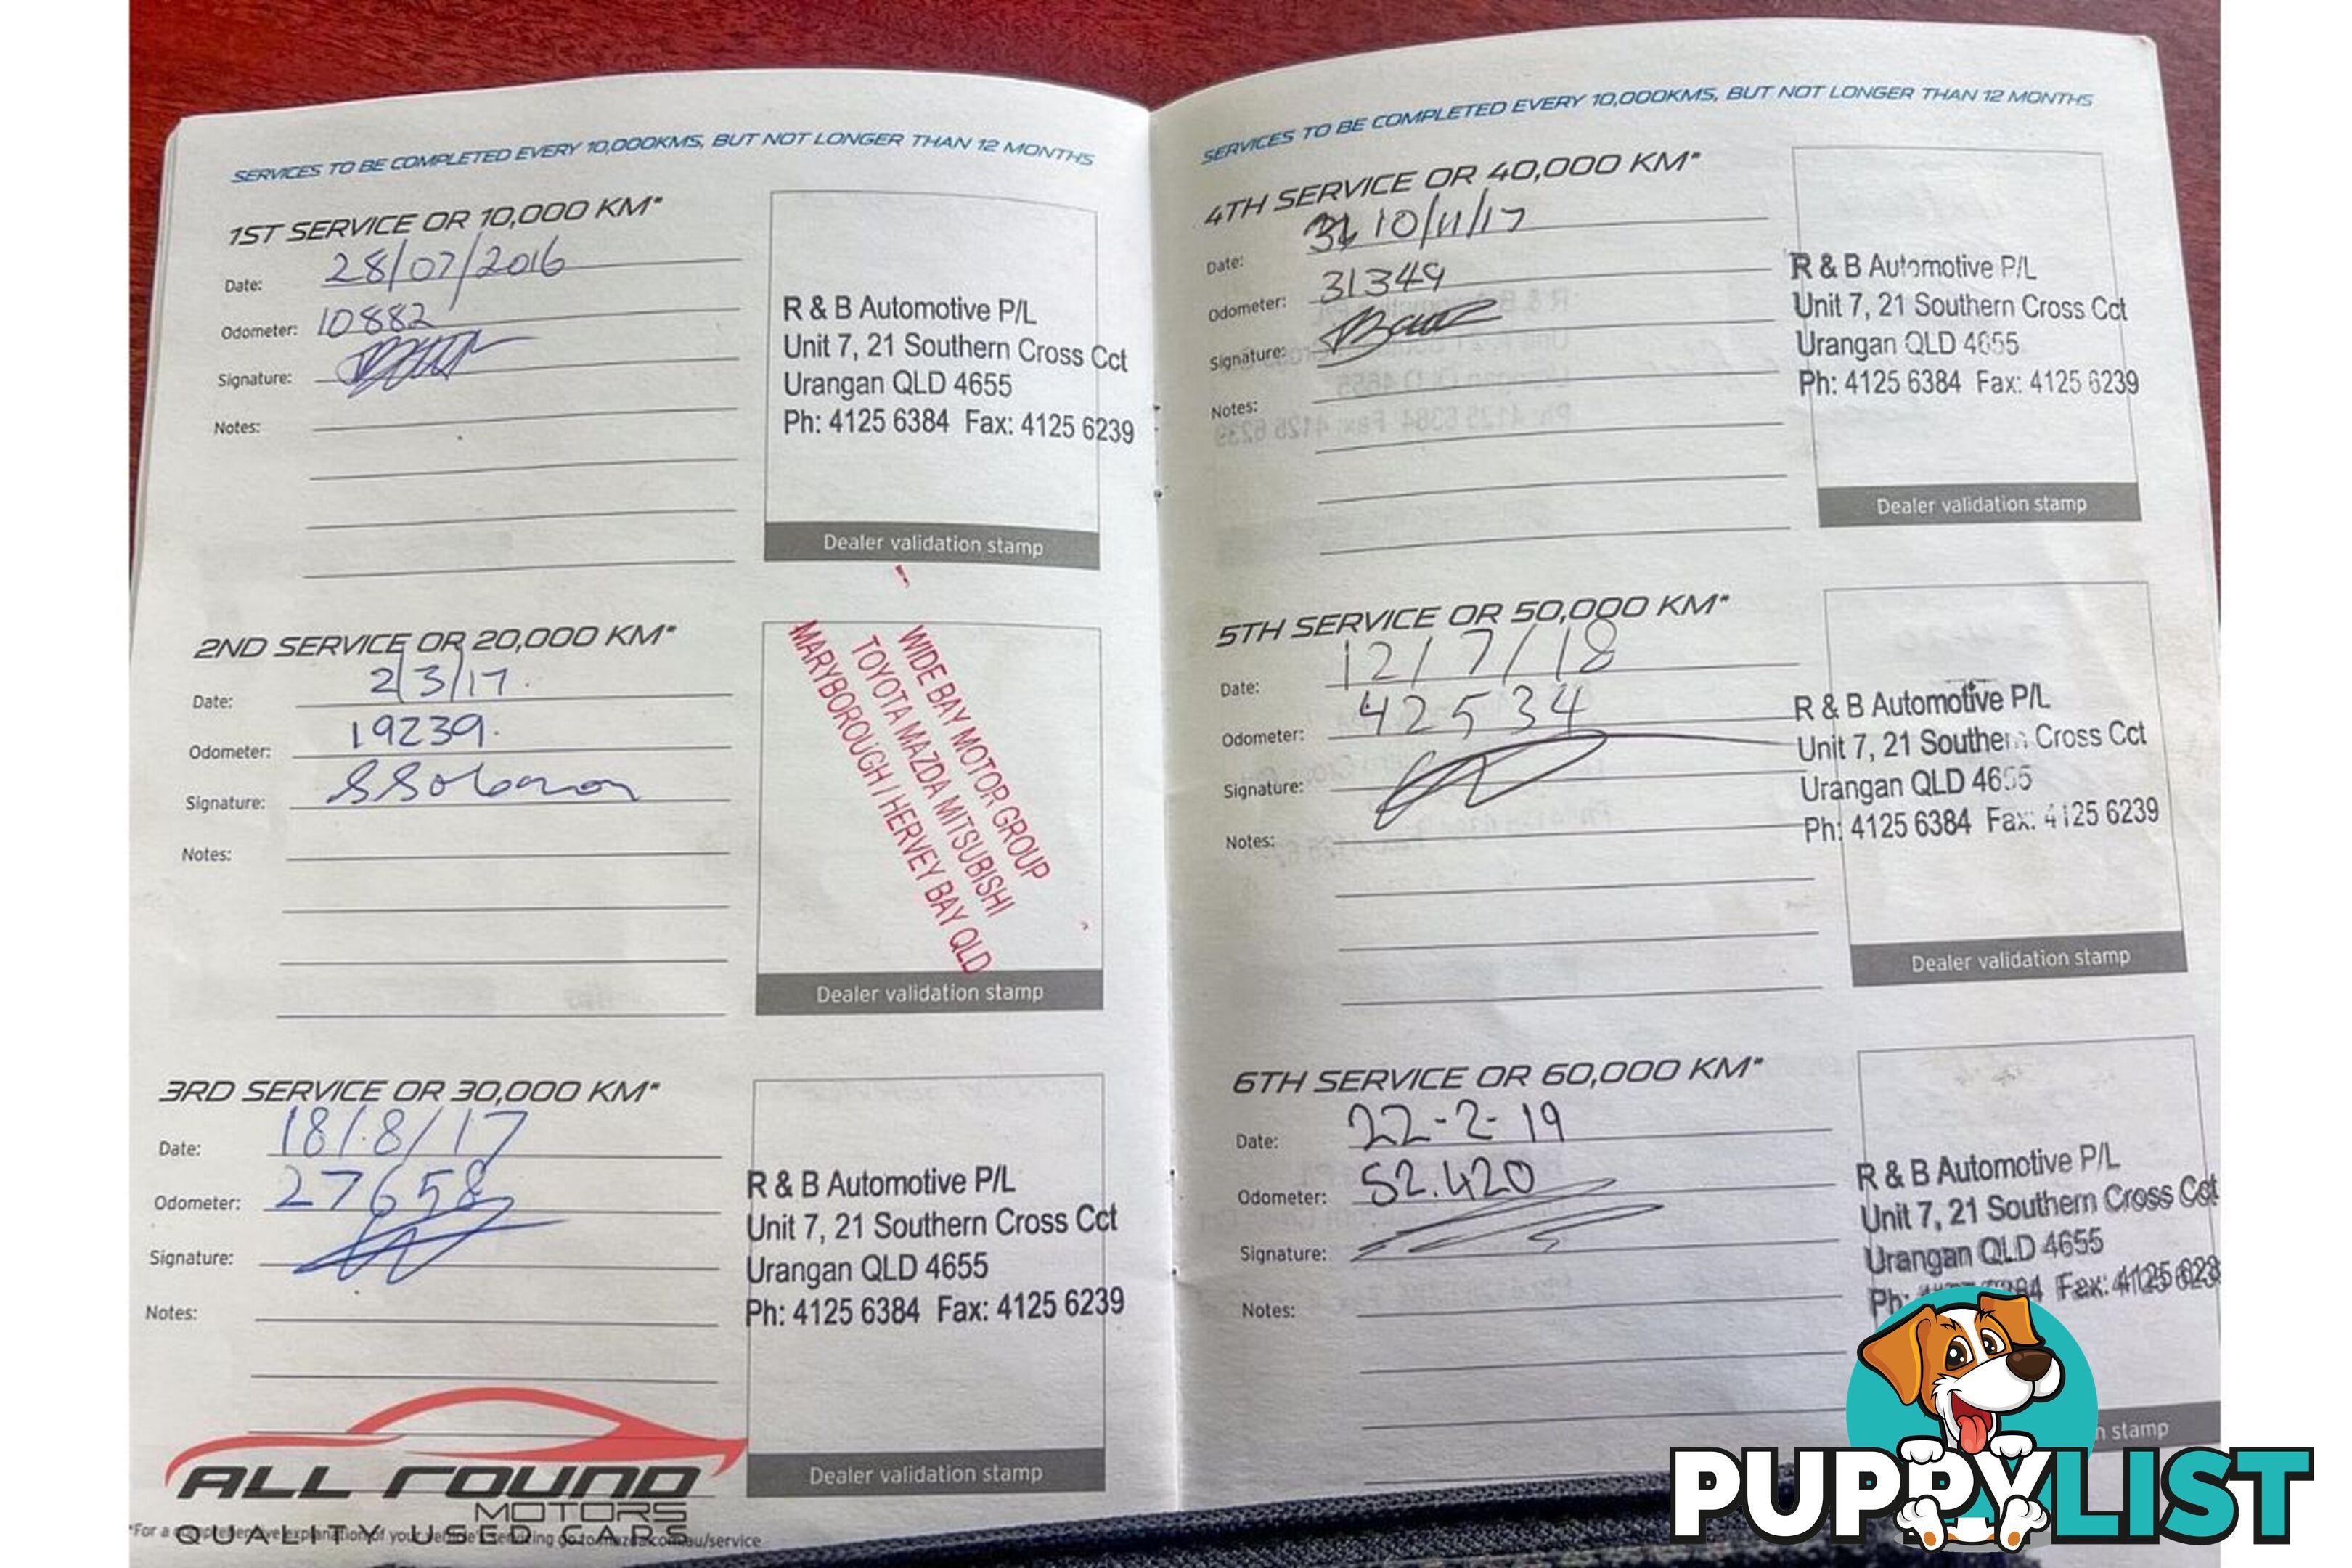 SERVICES TO BE COMPLETED EVERY 10,000KMS, BUT NOT LONGER THAN 12 MONTHS
1ST SERVICE OR 10,000 KM*
Date: 28/07/2016
Odometer: 10882
Signature:
Notes:
R & B Automotive P/L
Unit 7, 21 Southern Cross Cct
Urangan QLD 4655
Ph: 4125 6384 Fax: 4125 6239
Dealer validation stamp
2ND SERVICE OR 20,000 KM*
Date: 2/3/17.
Odometer: 19239.
Signature:
Notes:
WIDE BAY MOTOR GROUP
TOYOTA MAZDA MITSUBISHI
MARYBOROUGH / HERVEY BAY QLD
Dealer validation stamp
3RD SERVICE OR 30,000 KM*
Date: 18/8/17
Odometer: 27658
Signature:
Notes:
R & B Automotive P/L
Unit 7, 21 Southern Cross Cct
Urangan QLD 4655
Ph: 4125 6384 Fax: 4125 6239
Dealer validation stamp
ALL ROUND
MOTORS
QUALITY USED CARS
*For a comprehensive explanation of your vehicle's servicing go to mazda.com.au/service
SERVICES TO BE COMPLETED EVERY 10,000KMS, BUT NOT LONGER THAN 12 MONTHS
4TH SERVICE OR 40,000 KM*
Date: 10/11/17
Odometer: 31349
Signature:
Notes:
R & B Automotive P/L
Unit 7, 21 Southern Cross Cct
Urangan QLD 4655
Ph: 4125 6384 Fax: 4125 6239
Dealer validation stamp
5TH SERVICE OR 50,000 KM*
Date: 12/7/18
Odometer: 42534
Signature:
Notes:
R & B Automotive P/L
Unit 7, 21 Southern Cross Cct
Urangan QLD 4655
Ph: 4125 6384 Fax: 4125 6239
Dealer validation stamp
6TH SERVICE OR 60,000 KM*
Date: 22-2-19
Odometer: 52.420
Signature:
Notes:
R & B Automotive P/L
Unit 7, 21 Southern Cross Cct
Urangan QLD 4655
Ph: Fax: 4125 623
stamp
PUPPYLIST